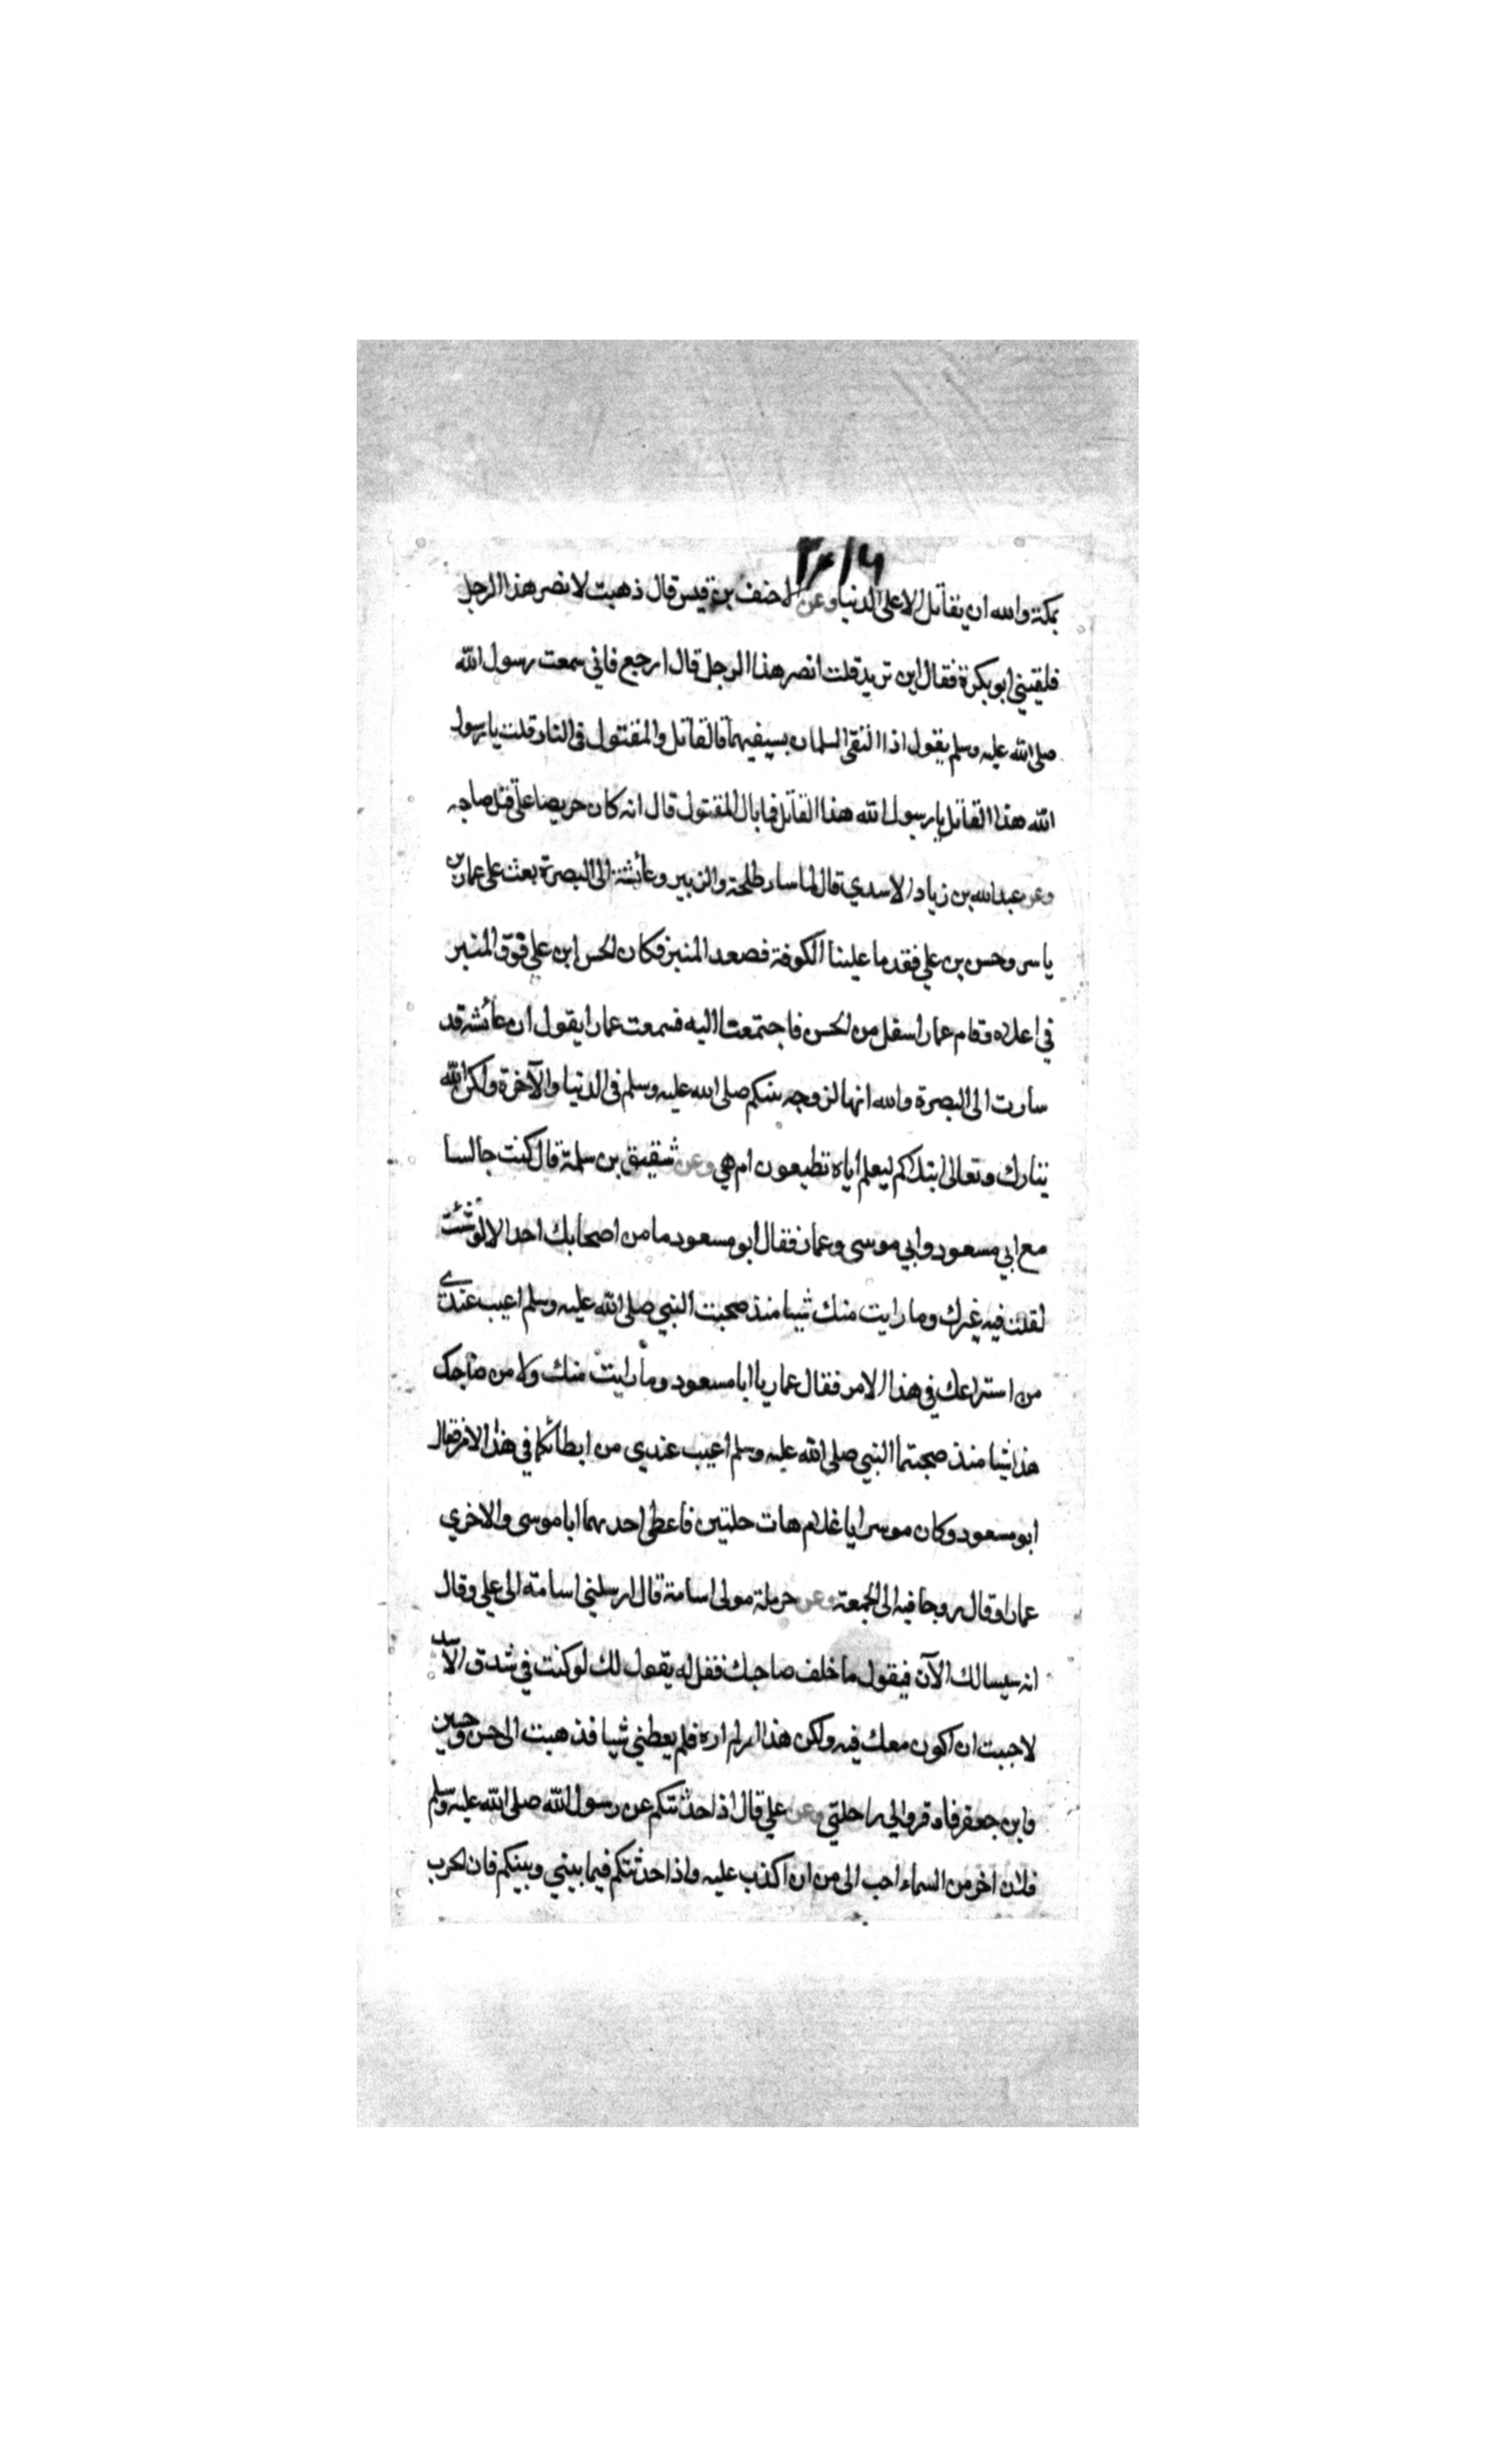 بمكة والله ان يقاتل الا على الدنيا وعن الاحنف بن قيس قال ذهبت لانصر هذا الرجل
فلقيني ابو بكرة فقال اين تريد قلت انصر هذا الرجل قال ارجع فاني سمعت رسول الله
صلى الله عليه وسلم يقول اذا التقى المسلمان بسيفيهما فالقاتل والمقتول في النار قلت يا رسول
الله هذا القاتل يا رسول الله هذا القاتل فما بال المقتول قال انه كان حريصا على قتل صاحبه
وعن عبدالله بن زياد الاسدي قال لما سار طلحة والزبير وعائشة الى البصرة بعث علي عمار بن
ياسر وحسن بن علي فقدما علينا الكوفة فصعدا المنبر فكان الحسن ابن علي فوق المنبر
في اعلاه وقام عمار اسفل من الحسن فاجتمعنا اليه فسمعت عمارا يقول ان عائشه قد
سارت الى البصرة والله انها لزوجه نبيكم صلى الله عليه وسلم في الدنيا والآخرة ولكن الله
تبارك وتعالى ابتلاكم ليعلم اياه تطيعون ام هي وعن شقيق بن سلمة قال كنت جالسا
مع ابي مسعود وابي موسى وعمار فقال ابو مسعود ما من اصحابك احد الا لو شئت
لقلت فيه غيرك وما رايت منك شيا منذ صحبت النبي صلى الله عليه وسلم اعيب عندي
من استراعك في هذا الامر فقال عمار يا ابا مسعود وما رايت منك ولا من صاحبك
هذا شيا منذ صحبتما النبي صلى الله عليه وسلم اعيب عندي من ابطائكما في هذا الامر فقال
ابو مسعود وكان موسرا يا غلام هات حلتين فاعطى احدهما ابا موسى والاخري
عمارا وقال روحا فيه الى الجمعة وعن حرملة مولى اسامة قال ارسلني اسامة الى علي وقال
انه سيسالك الآن فيقول ما خلف صاحبك فقل له يقول لك لو كنت في شدق الاسد
لاحببت ان اكون معك فيه ولكن هذا امر لم اره فلم يعطني شيا فذهبت الى حسن وحسين
وابن جعفر فاوقروا لي راحلتي وعن علي قال اذا حدثتكم عن رسول الله صلى الله عليه وسلم
فلان اخر من السماء احب الى من ان اكذب عليه واذا حدثتكم فيما بيني وبينكم فان الحرب